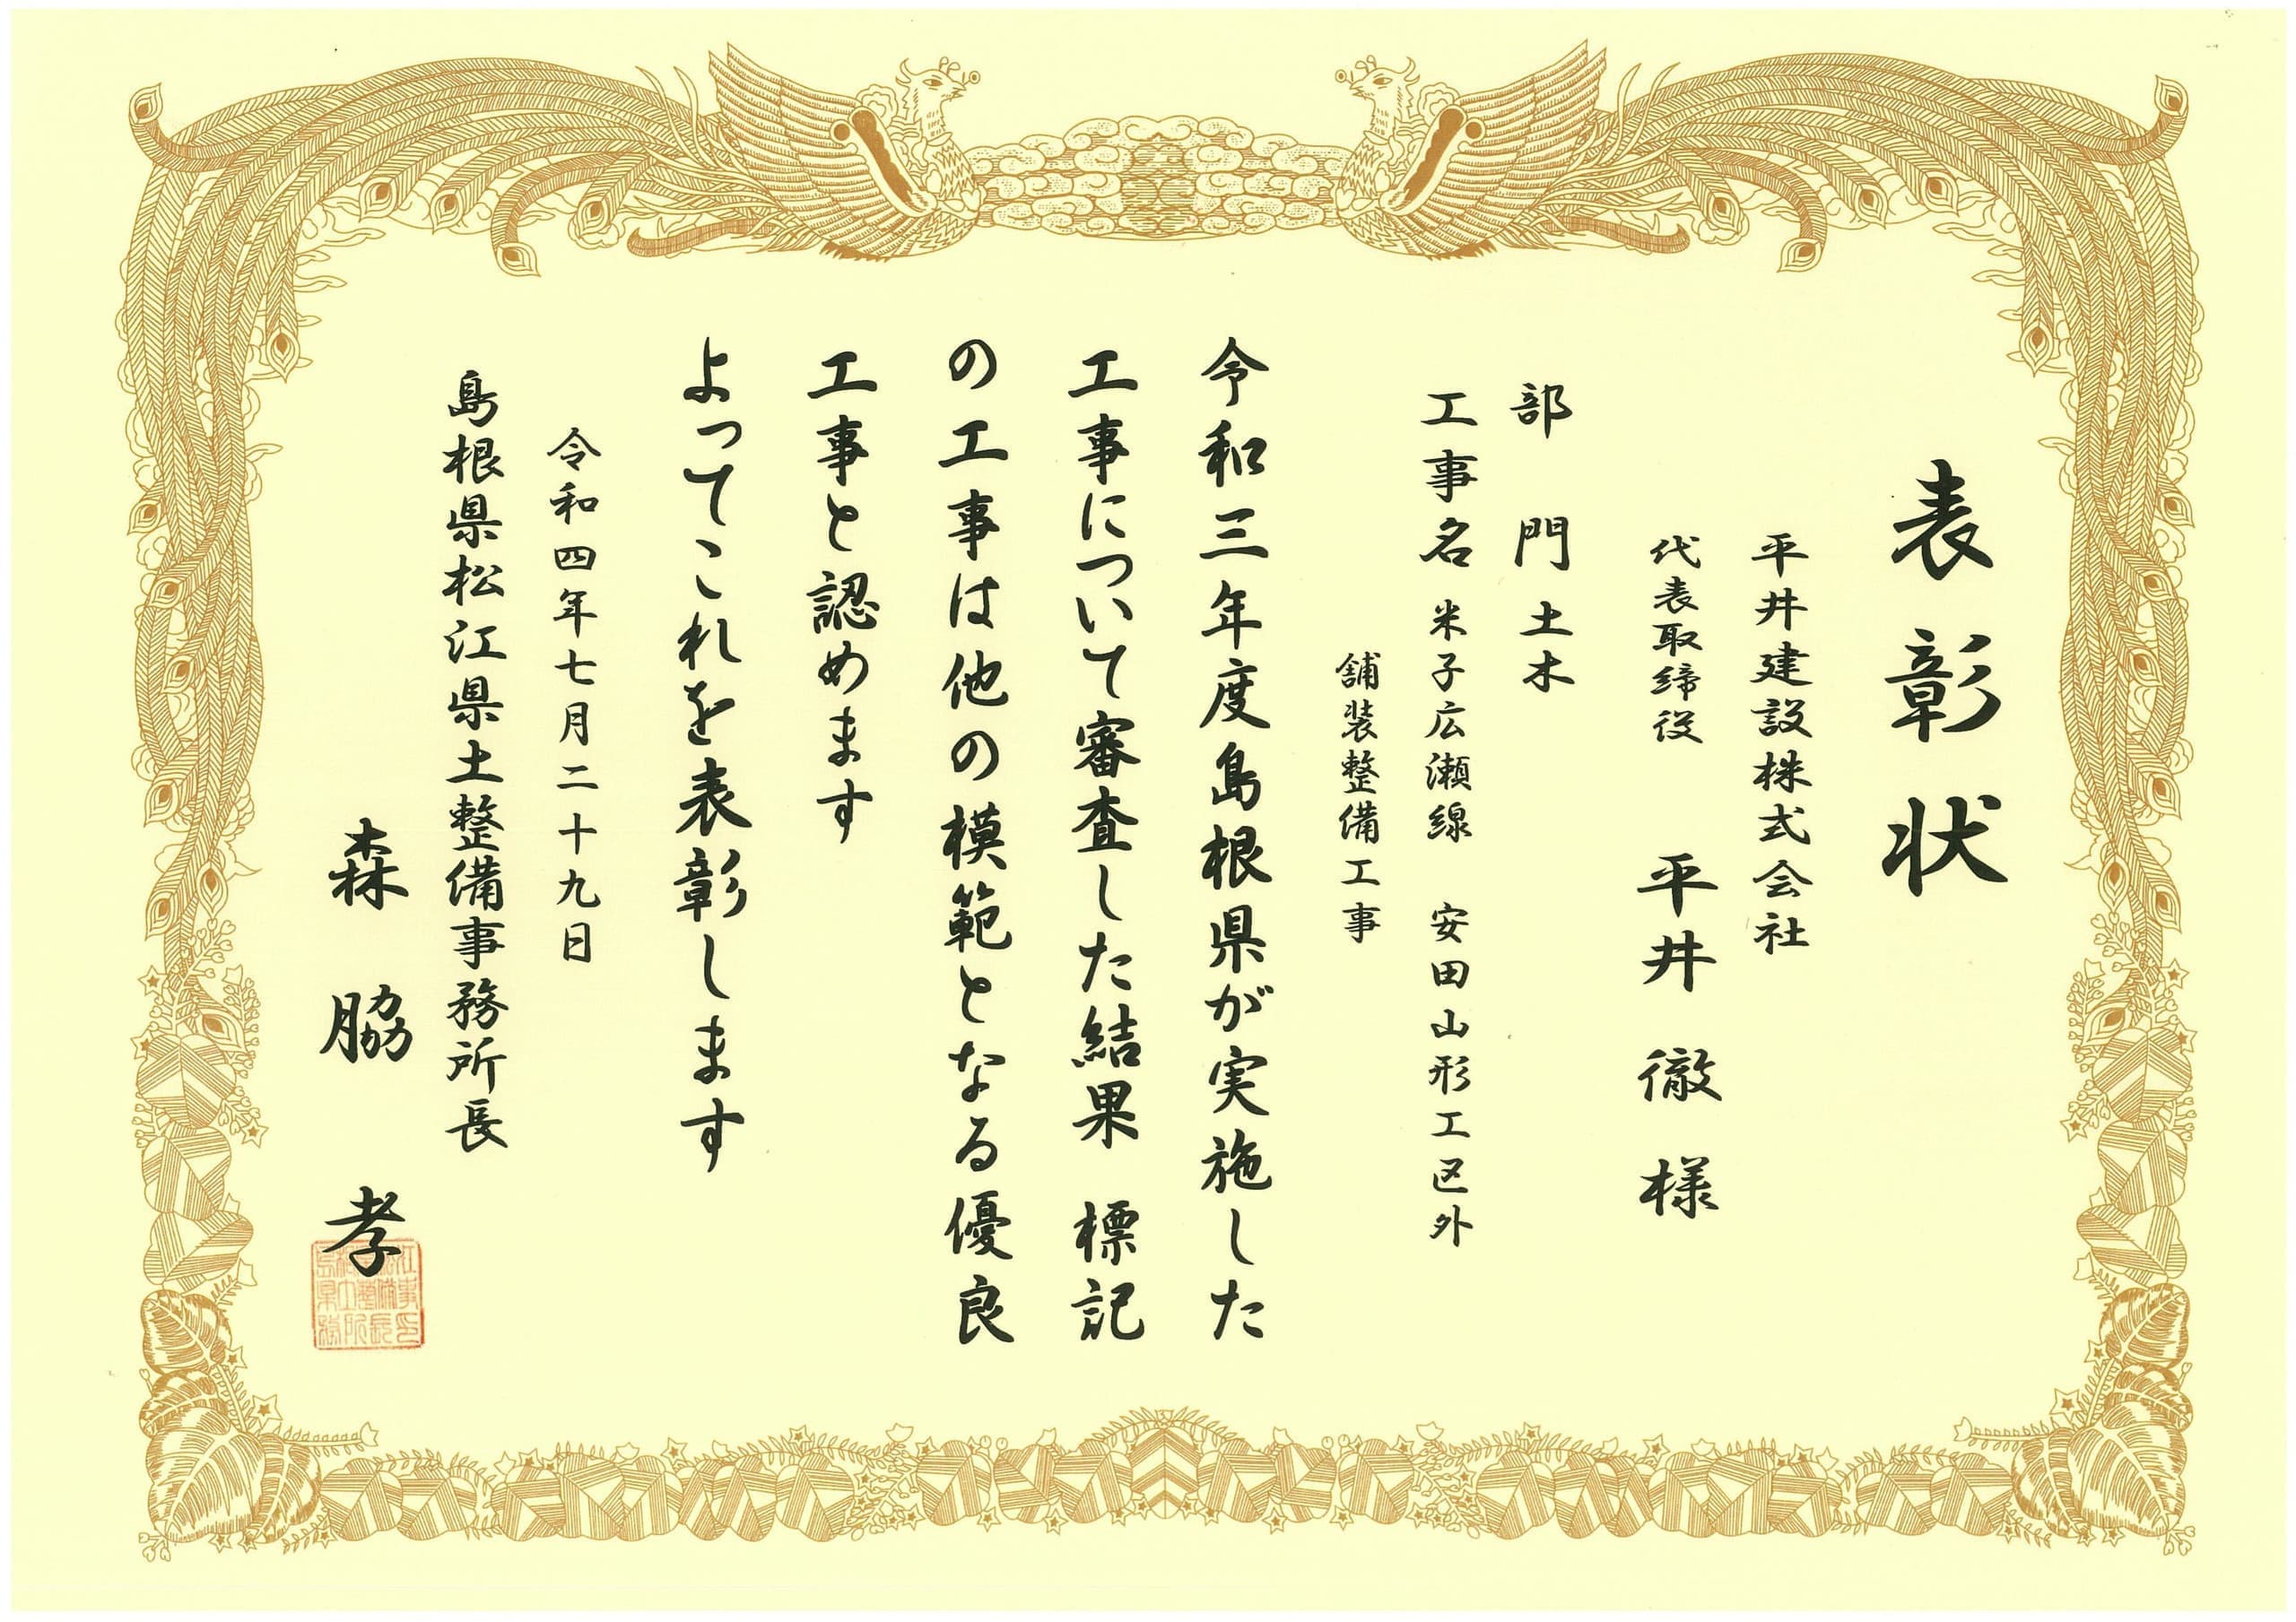 表彰状
平井建設株式会社
代表取締役　平井　徹　様
部　門　土木
工事名　米子広瀬線　安田山形工区外
舗装整備工事
令和三年度島根県が実施した
工事について審査した結果　標記
の工事は他の模範となる優良
工事と認めます
よってこれを表彰します
令和四年七月二十九日
島根県松江県土整備事務所長
森　脇　孝